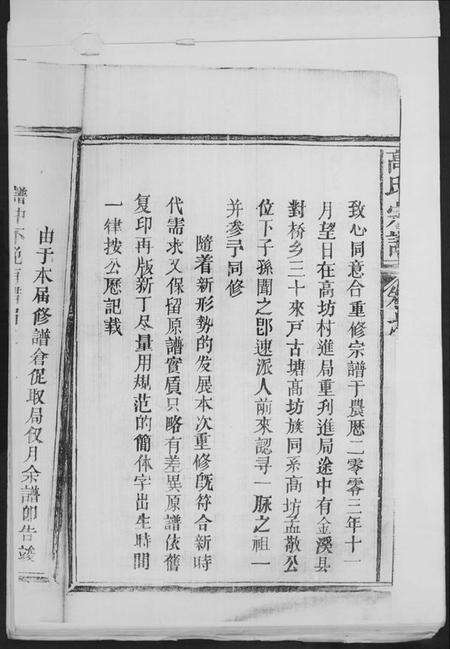 高氏宗譜
致心同意合重修宗譜于農曆二零零三年十一
月望日在高坊村進局重刋進局途中有金溪县
對桥乡三十來戸古塘高坊族同系高坊孟敬公
位下子孫聞之卽速派人前來認寻一脉之祖一
并参予同修
隨着新形勢的发展本次重修旣符合新時
代需求又保留原譜實质只略有差異原譜依舊
复印再版新丁尽量用規范的簡体字出生時間
一律按公歷記载
由于本届修譜倉促取局仅月余譜卽告竣